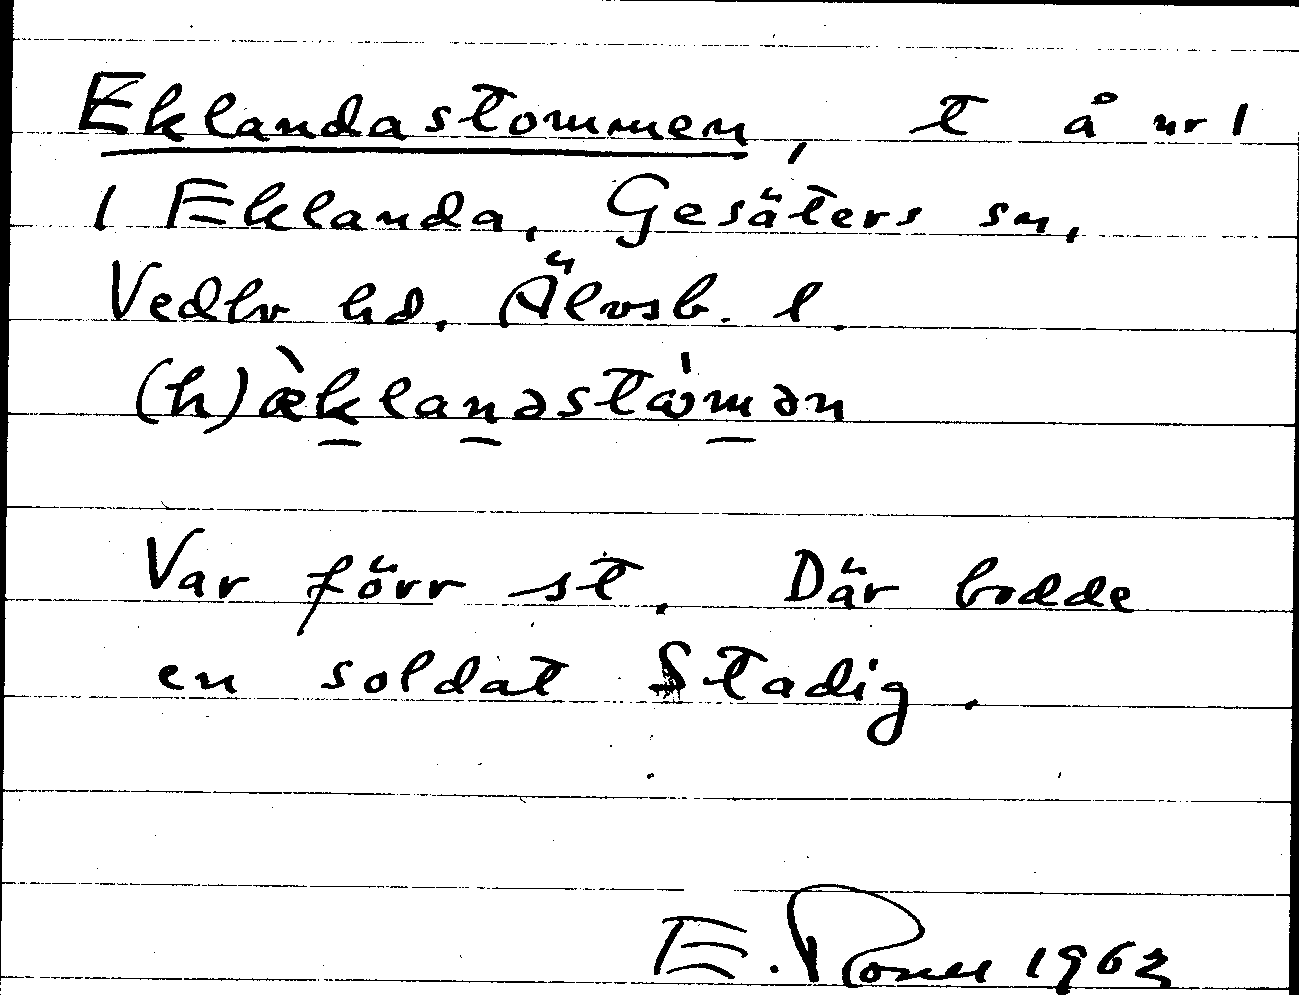 Eklandastommen, t å nr 1
1 Eklanda, Gesäters sn,
Vedbo hd. Älvsb. l.
(h)æ̀klanəstȧ̀mən
Var förr st. Där bodde
en soldat Stadig.
E. 1962